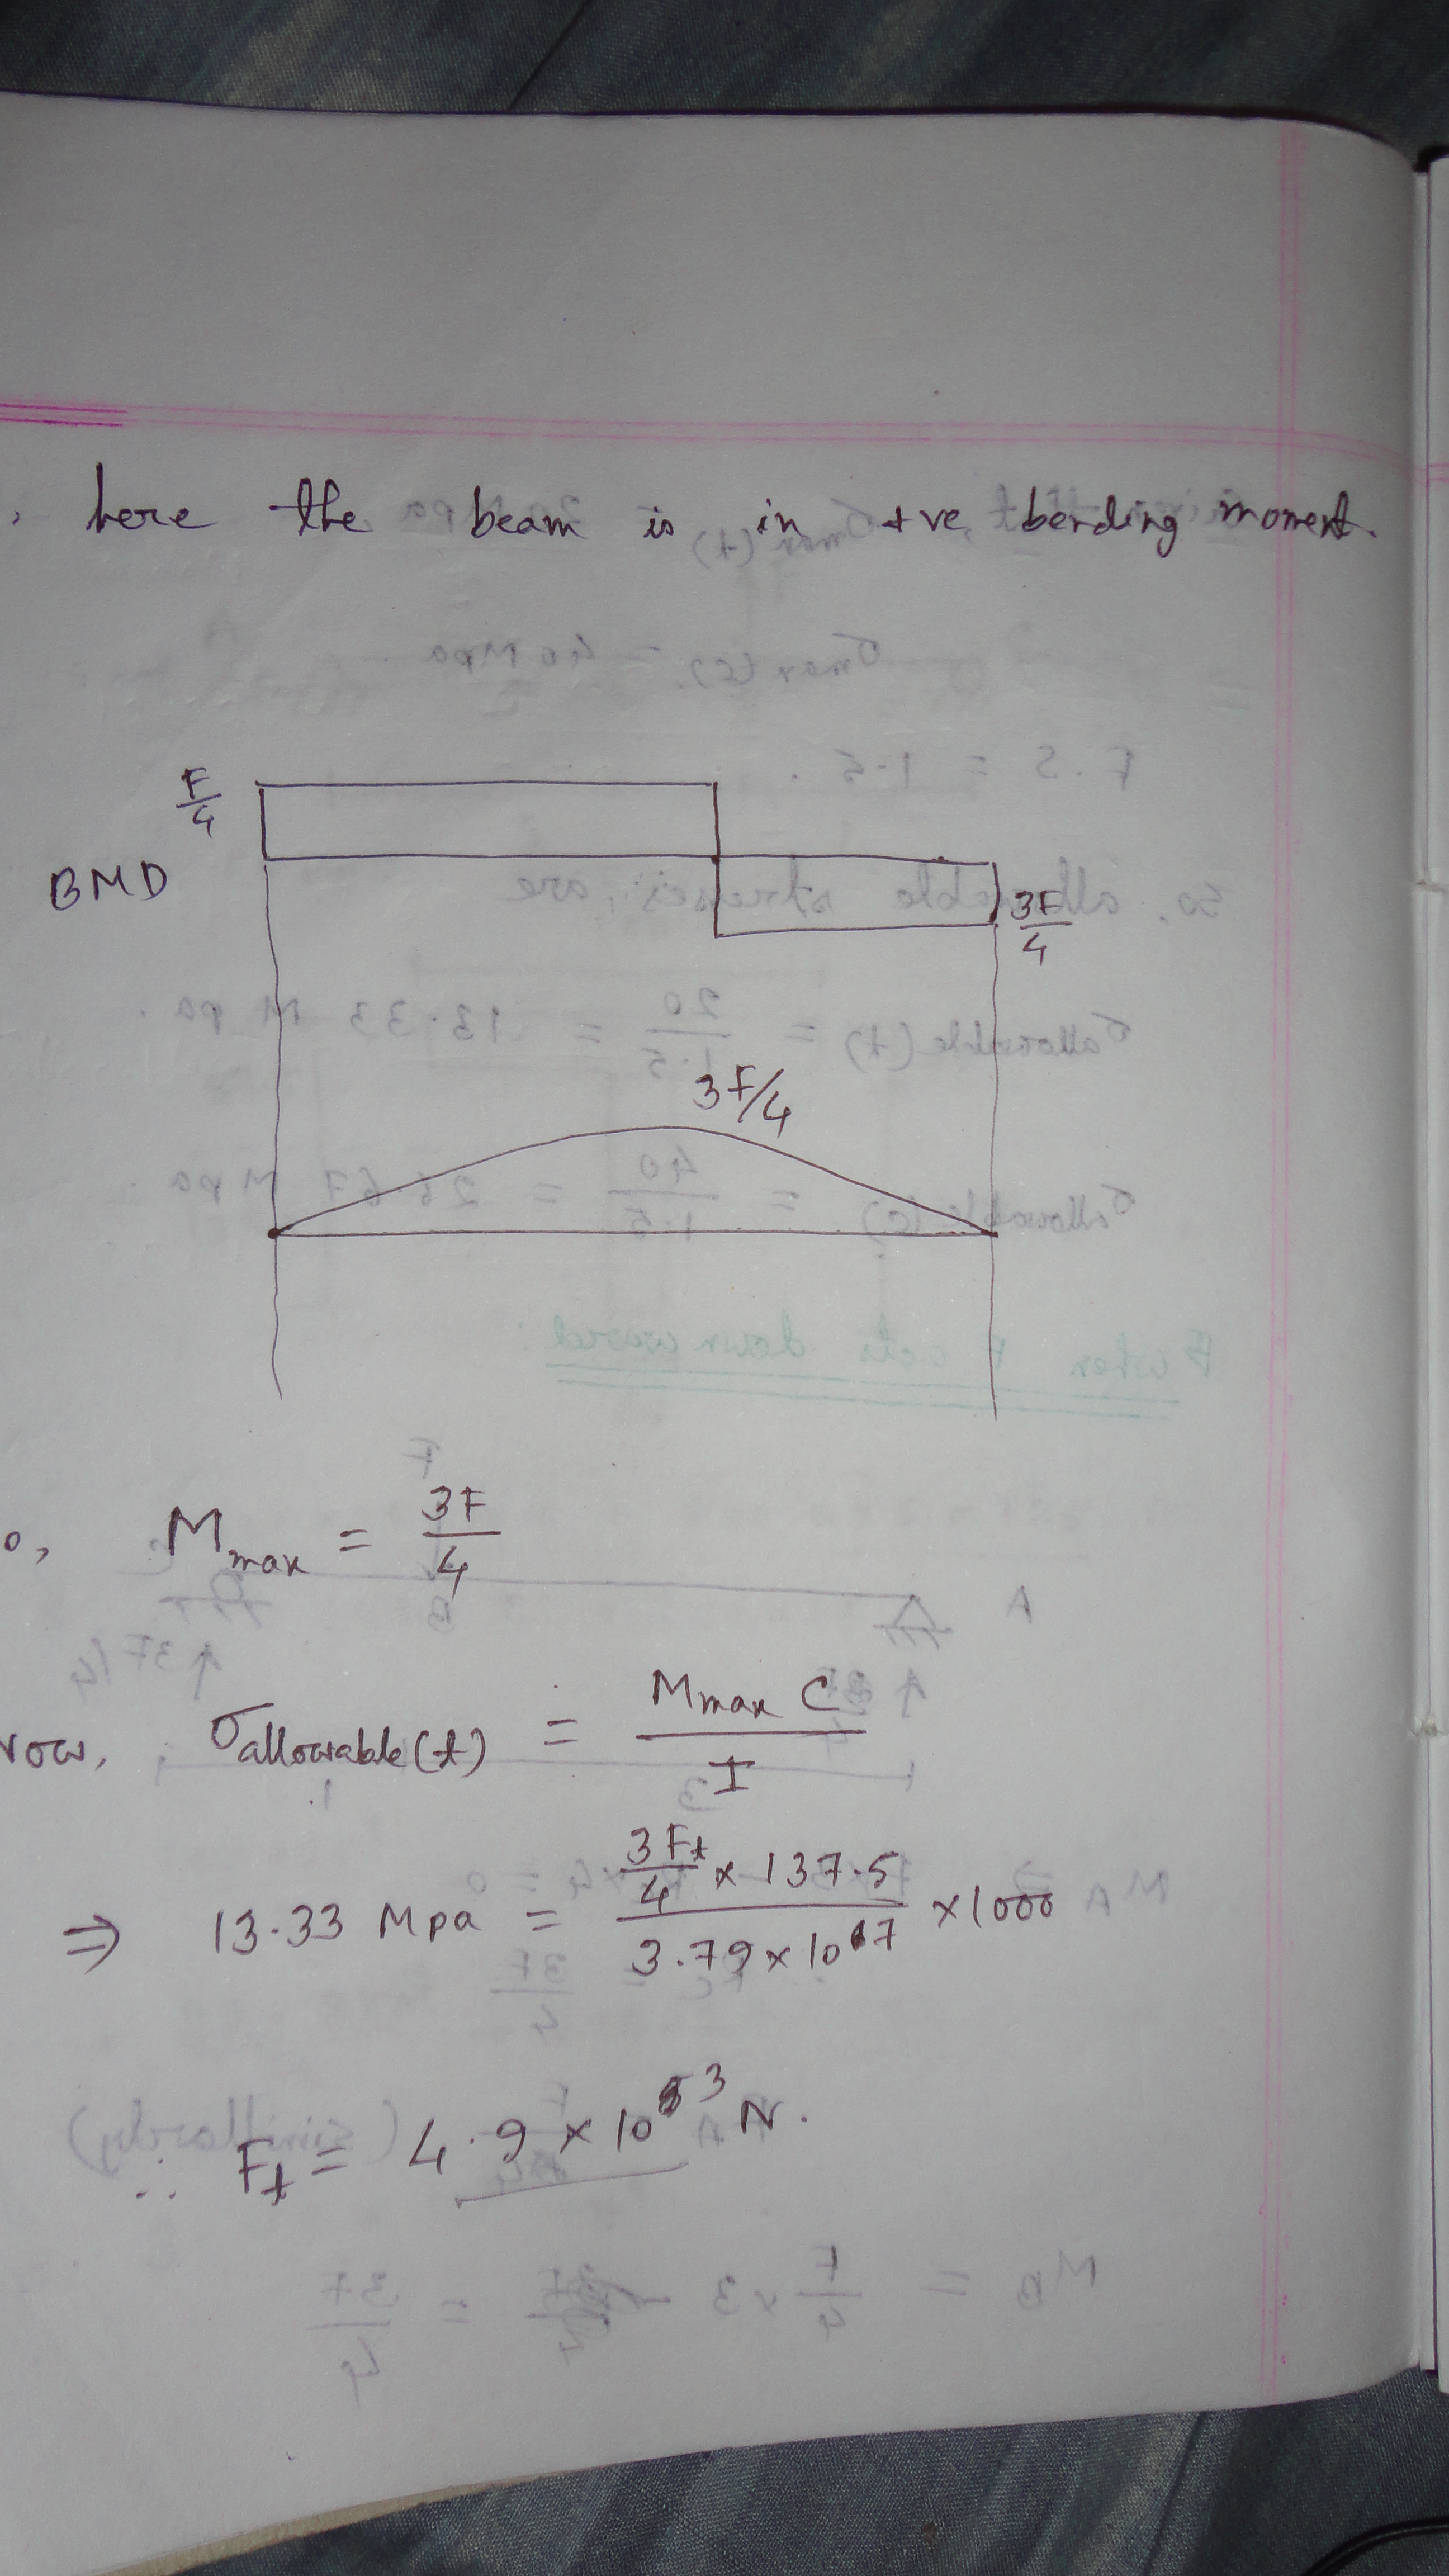 , here the beam is in +ve bending moment.
F/4
BMD
3F/4
3F/4
o, M_max = 3F/4
now, σ_allowable(t) = M_max C / I
⇒ 13.33 Mpa = (3F_t/4 × 137.5) / (3.79 × 10^7) × 1000
∴ F_t = 4.9 × 10^3 N.